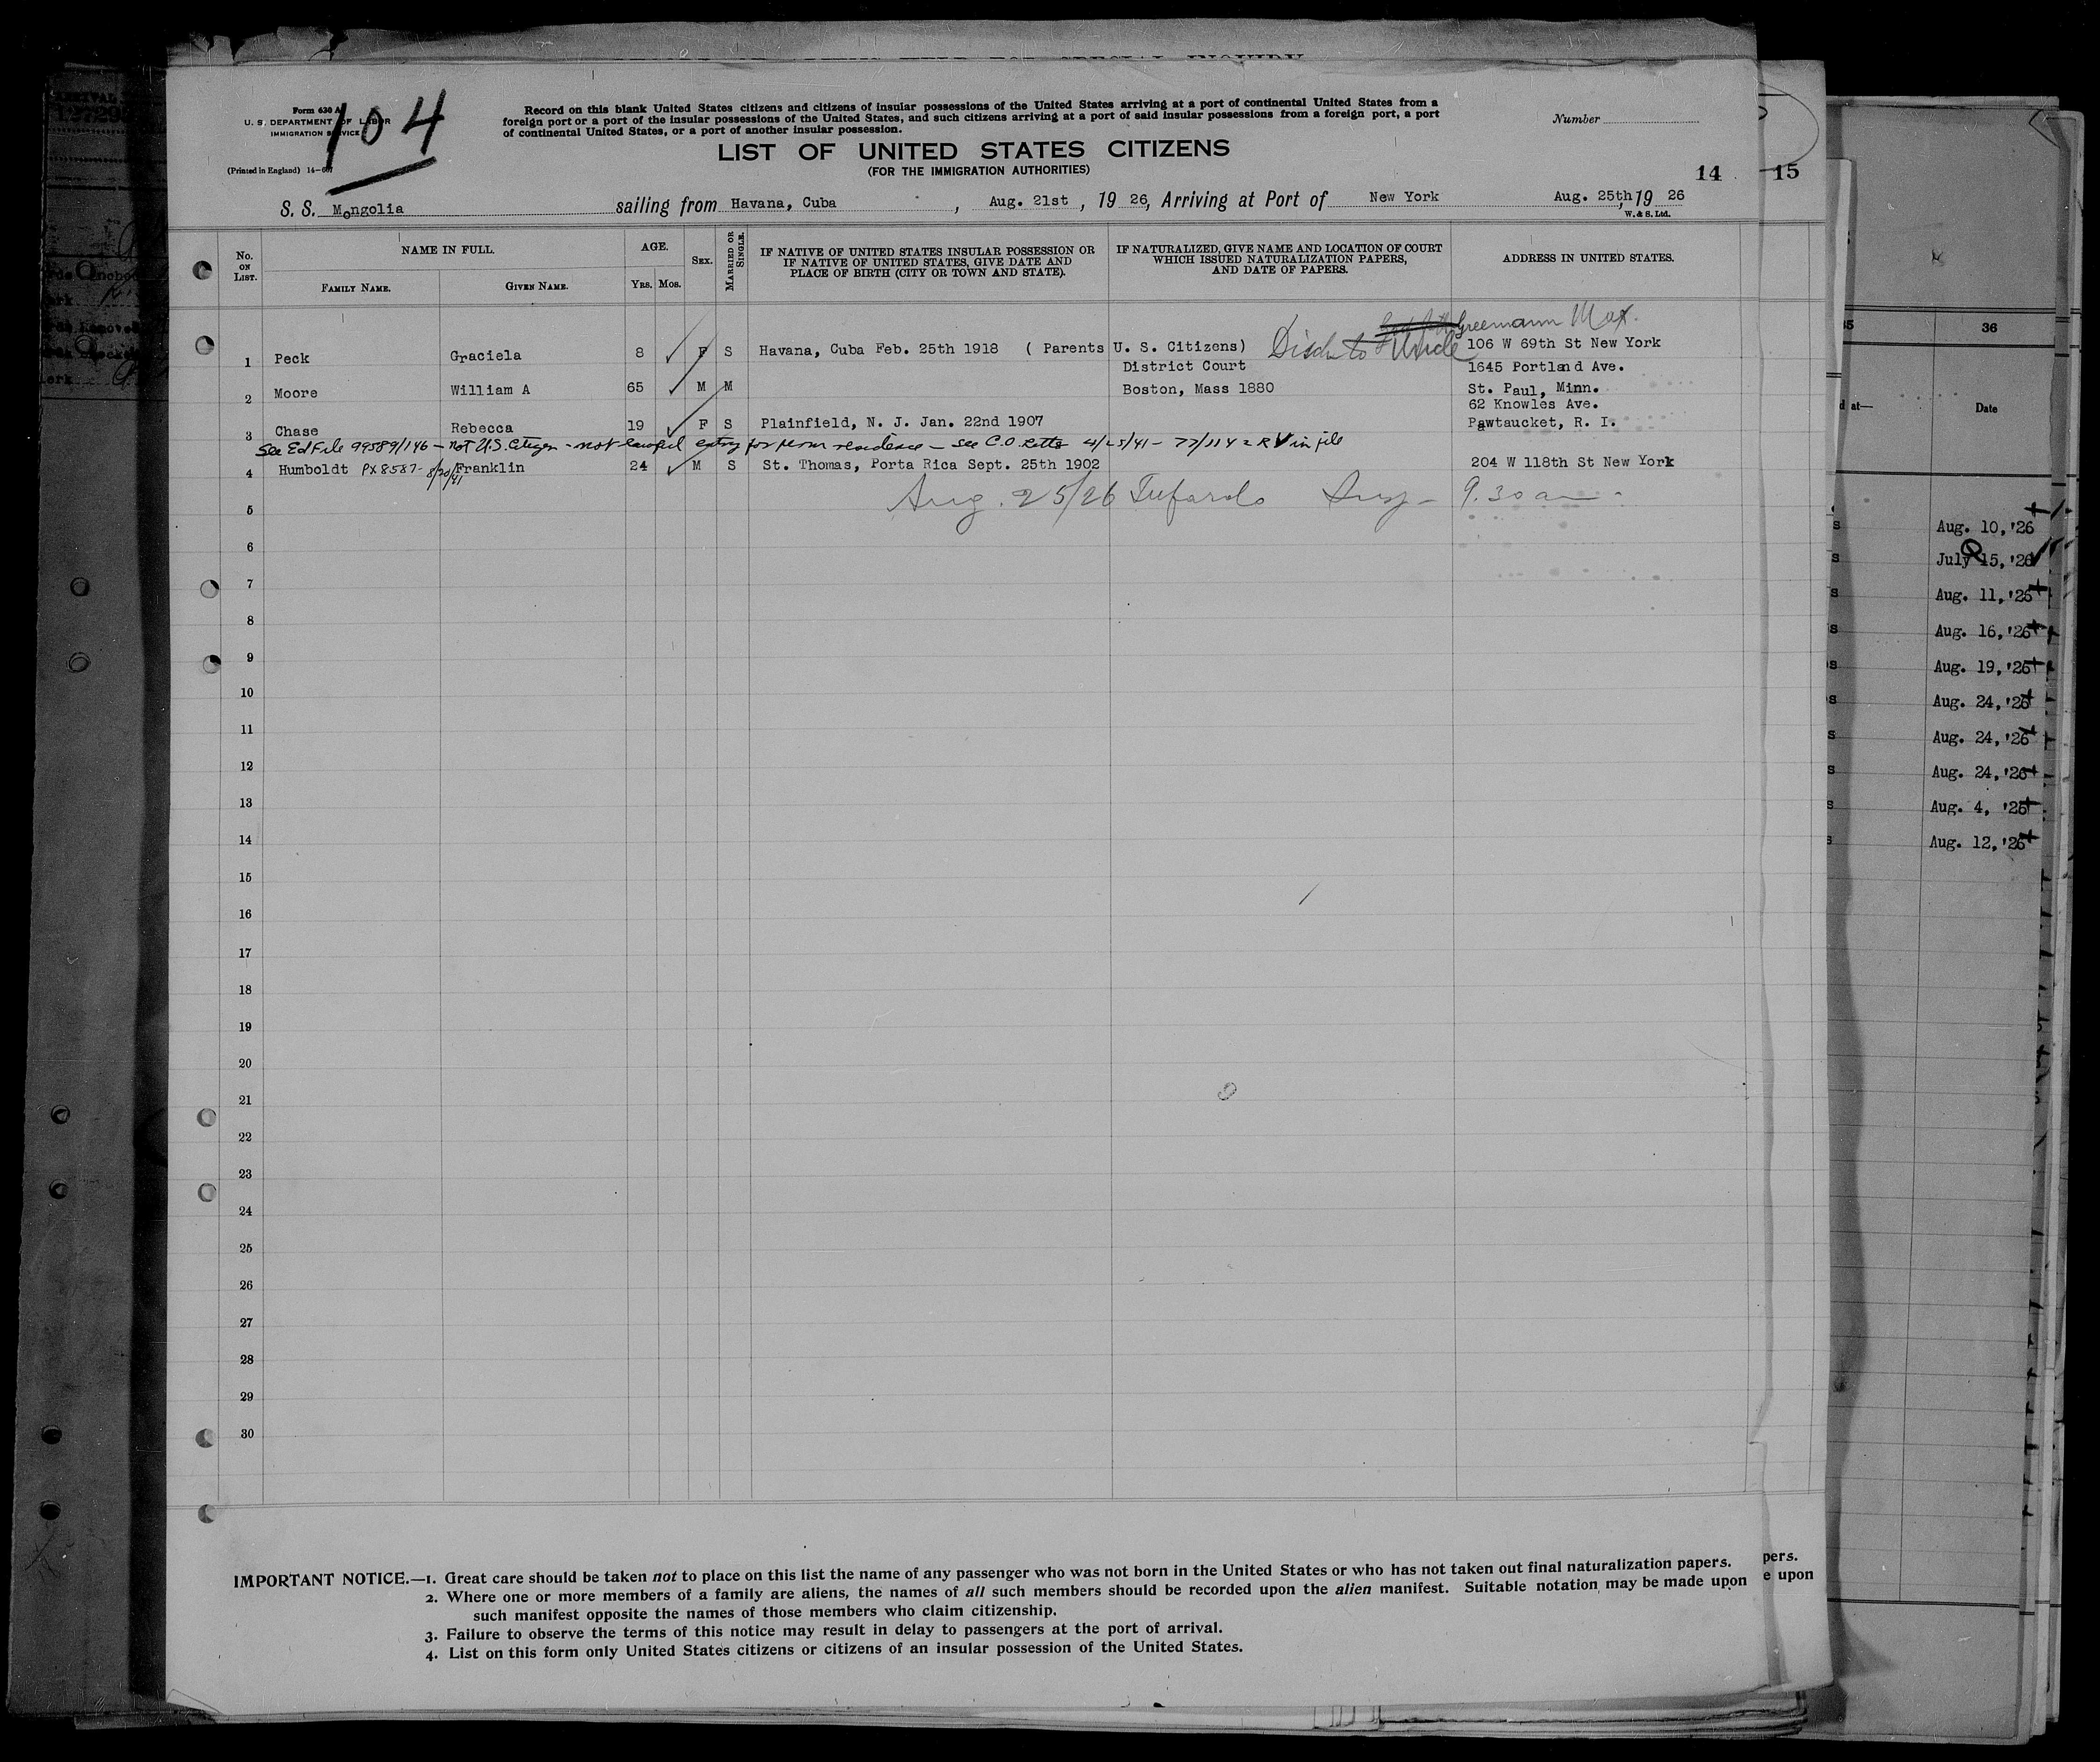 Form 630 A
U. S. DEPARTMENT OF LABOR
IMMIGRATION SERVICE
(Printed in England) 14—
104
Record on this blank United States citizens and citizens of insular possessions of the United States arriving at a port of continental United States from a
foreign port or a port of the insular possessions of the United States, and such citizens arriving at a port of said insular possessions from a foreign port, a port
of continental United States, or a port of another insular possession.
Number
LIST OF UNITED STATES CITIZENS
(FOR THE IMMIGRATION AUTHORITIES)
14
15
S. S. Mongolia sailing from Havana, Cuba, Aug. 21st, 19 26, Arriving at Port of New York Aug. 25th, 19 26
W. & S. Ltd.
No. ON LIST.
NAME IN FULL.
FAMILY NAME.
GIVEN NAME.
AGE.
YRS. MOS.
SEX.
MARRIED OR SINGLE.
IF NATIVE OF UNITED STATES INSULAR POSSESSION OR
IF NATIVE OF UNITED STATES, GIVE DATE AND
PLACE OF BIRTH (CITY OR TOWN AND STATE).
IF NATURALIZED, GIVE NAME AND LOCATION OF COURT
WHICH ISSUED NATURALIZATION PAPERS,
AND DATE OF PAPERS.
ADDRESS IN UNITED STATES.
Greemann Max.
Disch to Uncle
1 Peck Graciela 8 F S Havana, Cuba Feb. 25th 1918 ( Parents U. S. Citizens) 106 W 69th St New York
District Court 1645 Portland Ave.
2 Moore William A 65 M M Boston, Mass 1880 St. Paul, Minn.
62 Knowles Ave.
3 Chase Rebecca 19 F S Plainfield, N. J. Jan. 22nd 1907 Pawtaucket, R. I.
See Ed File 99589/146 — not U.S. Citizen - not lawful entry for perm residence — see C.O. letter 4/25/41 — in file
4 Humboldt PX8587- 8/20/41 Franklin 24 M S St. Thomas, Porta Rica Sept. 25th 1902 204 W 118th St New York
Aug. 25/26 Insp — 9.30 am
5
6
7
8
9
10
11
12
13
14
15
16
17
18
19
20
21
22
23
24
25
26
27
28
29
30
IMPORTANT NOTICE.—1. Great care should be taken not to place on this list the name of any passenger who was not born in the United States or who has not taken out final naturalization papers.
2. Where one or more members of a family are aliens, the names of all such members should be recorded upon the alien manifest. Suitable notation may be made upon
such manifest opposite the names of those members who claim citizenship.
3. Failure to observe the terms of this notice may result in delay to passengers at the port of arrival.
4. List on this form only United States citizens or citizens of an insular possession of the United States.
pers.
e upon
36
d at—
Date
Aug. 10, '26
July 15, '26
Aug. 11, '26
Aug. 16, '26
Aug. 19, '26
Aug. 24, '26
Aug. 24, '26
Aug. 24, '26
Aug. 4, '26
Aug. 12, '26